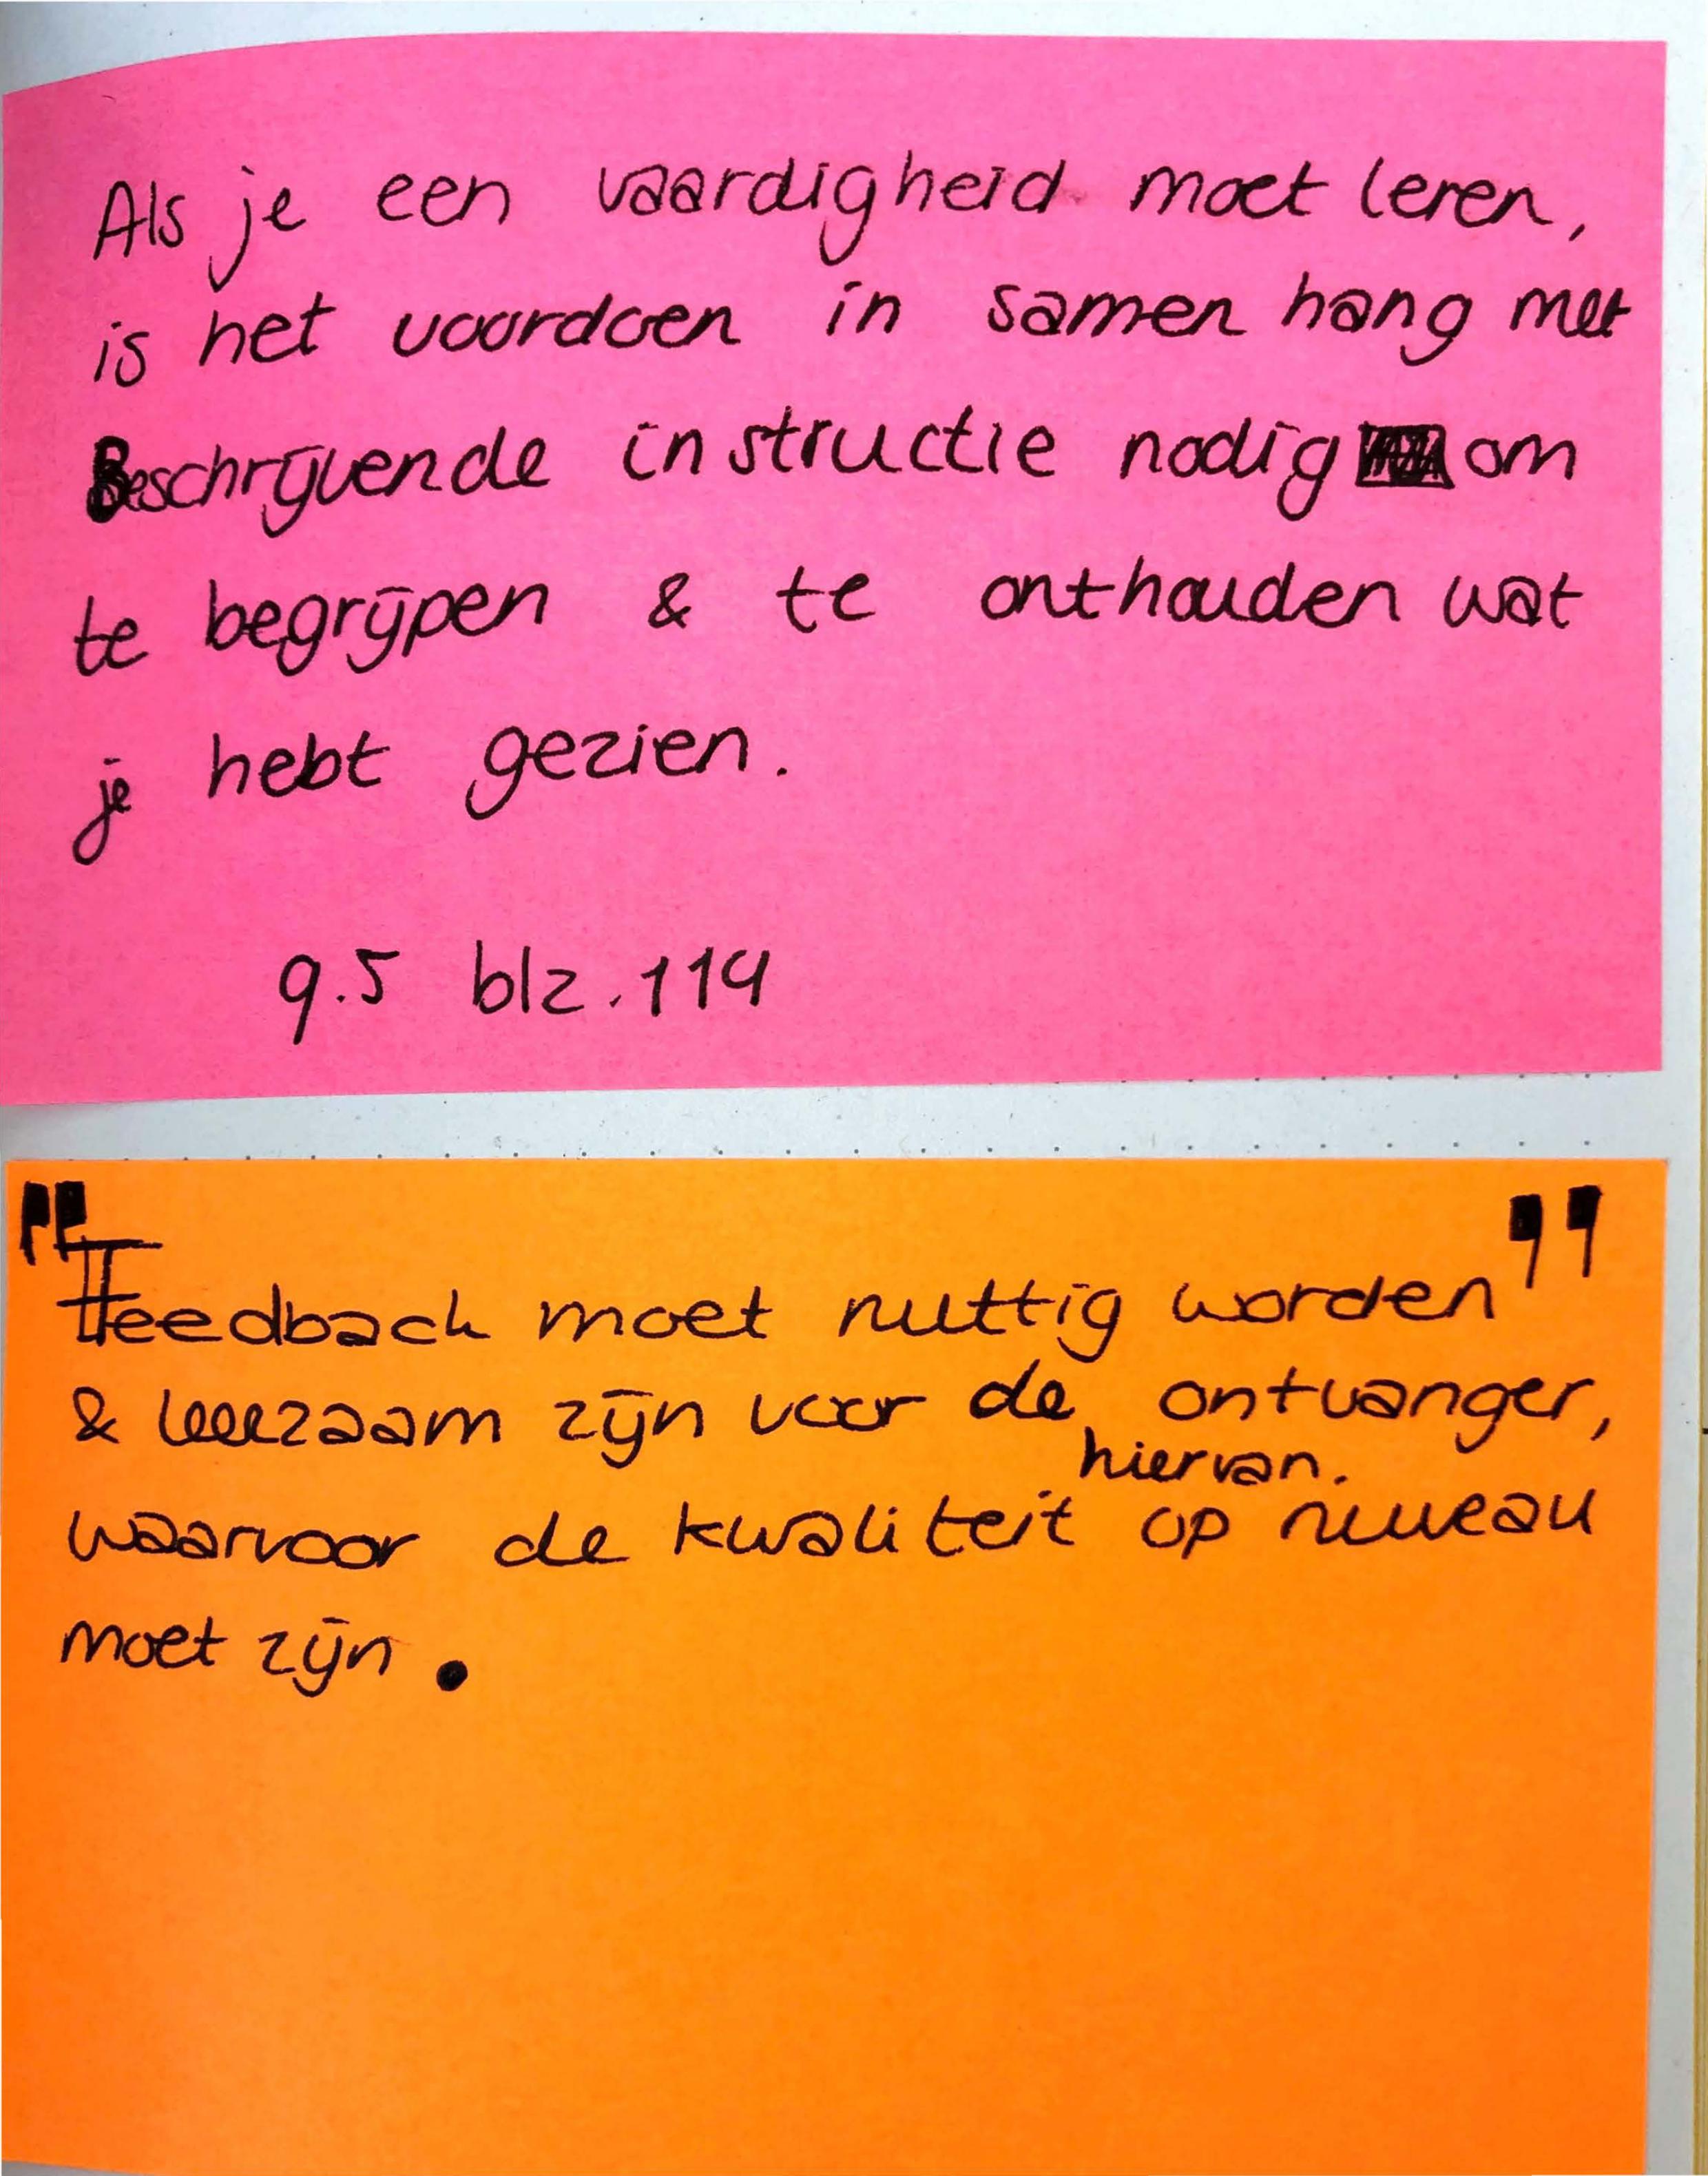 Als je een vaardigheid moet leren,
is het voordoen in samen hang met
Beschrijvende instructie nodig om
te begrijpen & te onthouden wat
je hebt gezien.
9.5 blz. 114
"Feedback moet nuttig worden"
& leerzaam zijn voor de ontvanger,
hiervan.
waarvoor de kwaliteit op niveau
moet zijn.